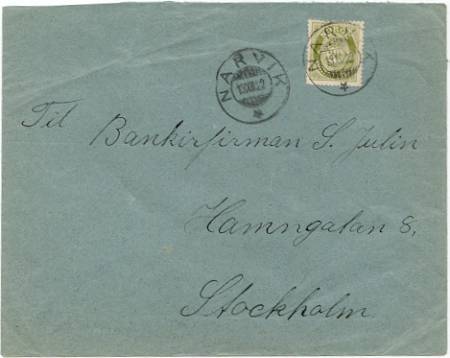 NARVIK
NARVIK
Til Bankirfirman S. Julin
Hamngatan 8,
Stockholm.